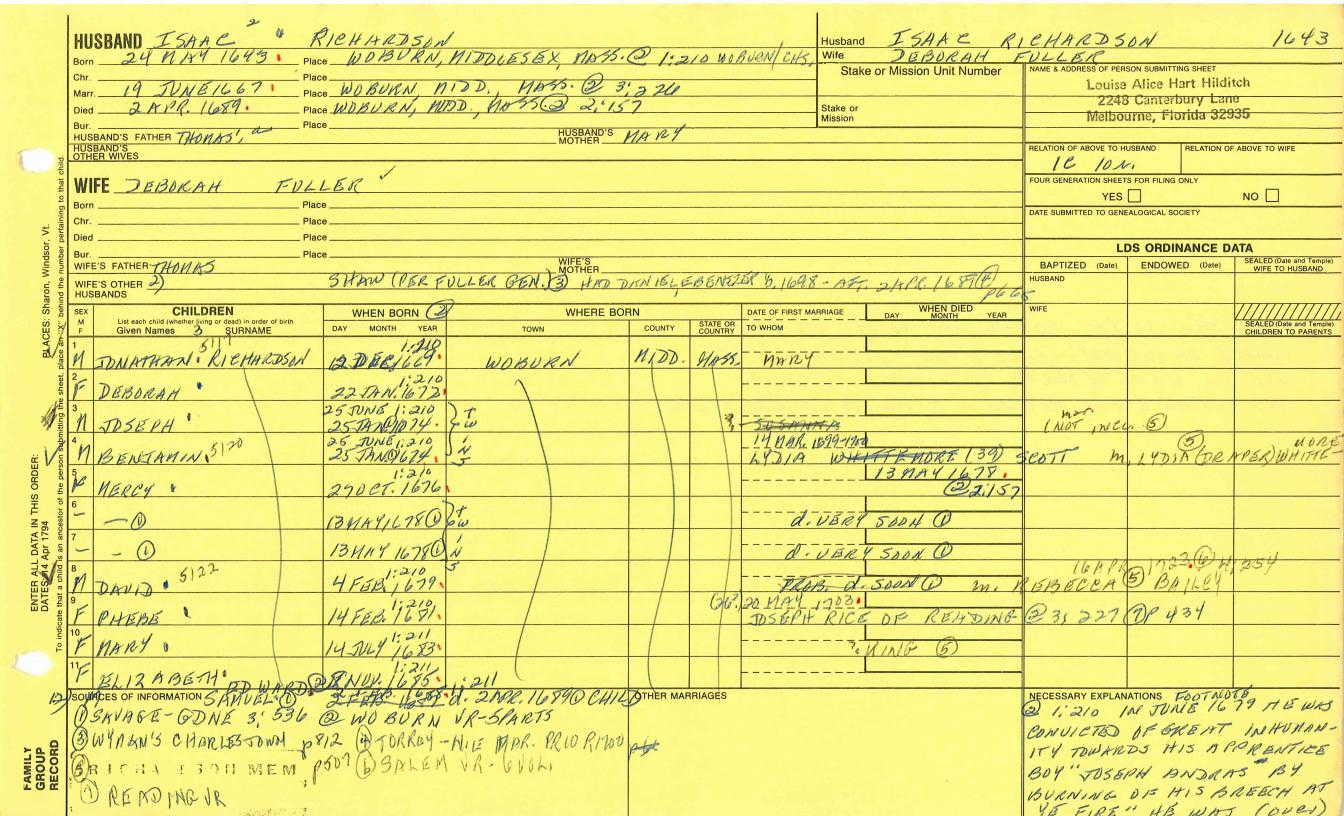 HUSBAND ISAAC 2 RICHARDSON
Born 24 MAY 1643 Place WOBURN, MIDDLESEX, MASS. @ 1:210 WOBURN/CHS.
Chr. Place
Marr. 19 JUNE 1667 Place WOBURN, MIDD., MASS. @ 3:226
Died 2 APR. 1689 Place WOBURN, MIDD, MASS @ 2:157
Bur. Place
HUSBAND'S FATHER THOMAS, HUSBAND'S MOTHER MARY
HUSBAND'S OTHER WIVES
WIFE DEBORAH FULLER ✓
Born Place
Chr. Place
Died Place
Bur. Place
WIFE'S FATHER THOMAS WIFE'S MOTHER
WIFE'S OTHER HUSBANDS 2) SHAW (PER FULLER GEN.) (3) HAD DANIEL, EBENEZER b. 1698 - AFT. 2 APR. 1689 (4) p665
Husband ISAAC RICHARDSON 1643
Wife DEBORAH FULLER
Stake or Mission Unit Number
Stake or Mission
NAME & ADDRESS OF PERSON SUBMITTING SHEET
Louise Alice Hart Hilditch
2248 Canterbury Lane
Melbourne, Florida 32935
RELATION OF ABOVE TO HUSBAND RELATION OF ABOVE TO WIFE
1C 10N.
FOUR GENERATION SHEETS FOR FILING ONLY
YES NO
DATE SUBMITTED TO GENEALOGICAL SOCIETY
LDS ORDINANCE DATA
BAPTIZED (Date) ENDOWED (Date) SEALED (Date and Temple) WIFE TO HUSBAND
HUSBAND
WIFE
SEALED (Date and Temple) CHILDREN TO PARENTS
SEX M F CHILDREN WHEN BORN (2) WHERE BORN DATE OF FIRST MARRIAGE WHEN DIED
List each child (whether living or dead) in order of birth
Given Names 3 SURNAME DAY MONTH YEAR TOWN COUNTY STATE OR COUNTRY TO WHOM DAY MONTH YEAR
1 M JONATHAN 5117 RICHARDSON 12 DEC. 1669 1:210 WOBURN MIDD. MASS. MARY
2 F DEBORAH 22 JAN. 1672 1:210
3 M JOSEPH 25 JUNE 1:210 25 JAN. 1674 TWINS ? SUSANNA (NOT INCL. (5)
4 M BENJAMIN 5120 25 JUNE 1:210 25 JAN. 1674 14 MAR. 1699-1700 LYDIA WHITTEMORE (39) SCOTT (5) m. LYDIA (DRAPER) WHITTE-MORE
5 MERCY 27 OCT. 1676 1:210 13 MAY 1678 @ 2:157
6 - - (1) 13 MAY 1678 (1) TWINS d. VERY SOON (1)
7 - - (1) 13 MAY 1678 (1) d. VERY SOON (1)
8 M DAVID 5122 4 FEB. 1679 1:210 PROB. d. SOON (1) m. REBECCA (5) BAILEY 16 APR. 1723 (6) 4:254
9 F PHEBE 14 FEB. 1681 1:210 (26?) 20 MAY 1703 JOSEPH RICE OF READING @ 3:227 (7) P 434
10 F MARY 14 JULY 1683 1:211 ? KING (5)
11 F ELIZABETH NOV. 1685 1:211
12) EDWARD 1:211
SAMUEL (1) d. 2 APR. 1689 @ CHILD
SOURCES OF INFORMATION OTHER MARRIAGES
(1) SAVAGE-GDNE 3:536 @ WOBURN VR-5PARTS
(3) WYMAN'S CHARLESTOWN p812 (4) TORREY-N.E MAR. PRIOR 1700
(5) RICHARDSON MEM p507 (6) SALEM VR-6VOL.
(7) READING VR
NECESSARY EXPLANATIONS FOOTNOTE
(2) 1:210 IN JUNE 1679 HE WAS
CONVICTED OF GREAT INHUMAN-
ITY TOWARDS HIS APPRENTICE
BOY "JOSEPH ANDRAS" BY
BURNING OF HIS BREECH AT
YE FIRE" HE WAS (OVER)
FAMILY GROUP RECORD
ENTER ALL DATA IN THIS ORDER:
DATES: 14 Apr 1794
PLACES: Sharon, Windsor, Vt.
To indicate that a child is an ancestor of the person submitting the sheet, place an "X" behind the number pertaining to that child.